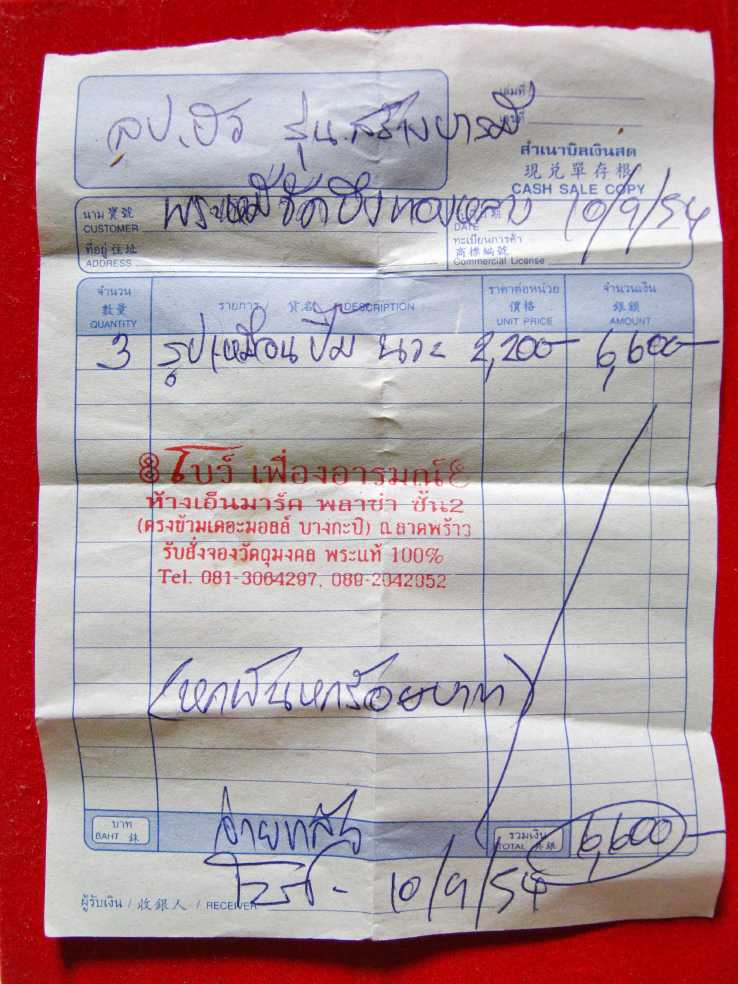 เล่มที่
เลขที่
ลป.ฮวด รุ่น สร้างบารมี
สำเนาบิลเงินสด
現兌單存根
CASH SALE COPY
นาม 寶號
CUSTOMER
DATE
10/9/54
ที่อยู่ 住址
ADDRESS
ทะเบียนการค้า
商標編號
Commercial License
จำนวน รายการ / 貨名 / DESCRIPTION ราคาต่อหน่วย จำนวนเงิน
數量 價格 銀額
QUANTITY UNIT PRICE AMOUNT
3 รูปเหมือนปั๊ม นวะ 2,200- 6,600-
โบว์ เฟื่องอารมณ์
ห้างเอ็นมาร์ค พลาซ่า ชั้น2
(ตรงข้ามเดอะมอลล์ บางกะปิ) ถ.ลาดพร้าว
รับสั่งจองวัตถุมงคล พระแท้ 100%
Tel. 081-3064297, 089-2042052
(หกพันหกร้อยบาท)
บาท รวมเงิน 6,600-
BAHT 銖 TOTAL 共銀
จ่ายแล้ว
10/9/54
ผู้รับเงิน / 收銀人 / RECEIVER